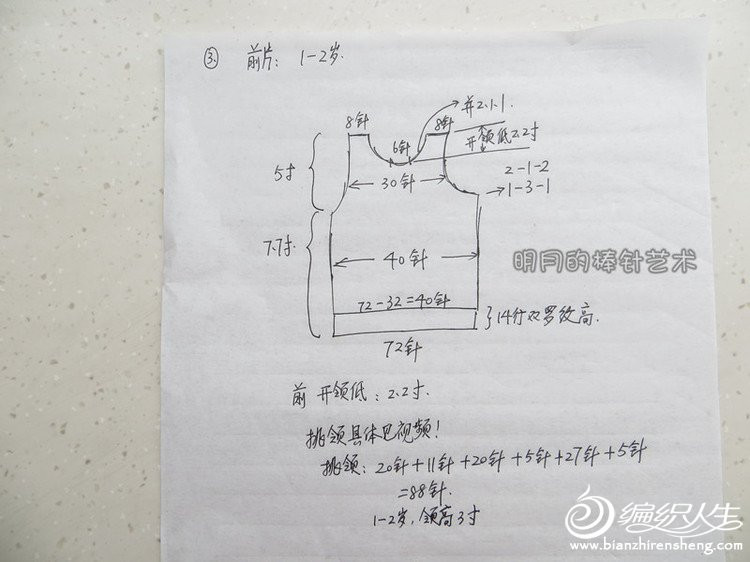 ③ 前片: 1-2岁.
并2.1.1.
8针 8针
6针
开领低2.2寸
5寸
30针
2-1-2
1-3-1
7.7寸.
40针
明月的棒针艺术
72-32=40针
14行双罗纹高.
72针
前 开领低: 2.2寸.
挑领具体见视频!
挑领: 20针+11针+20针+5针+27针+5针
=88针.
1-2岁, 领高3寸
编织人生
www.bianzhirensheng.com